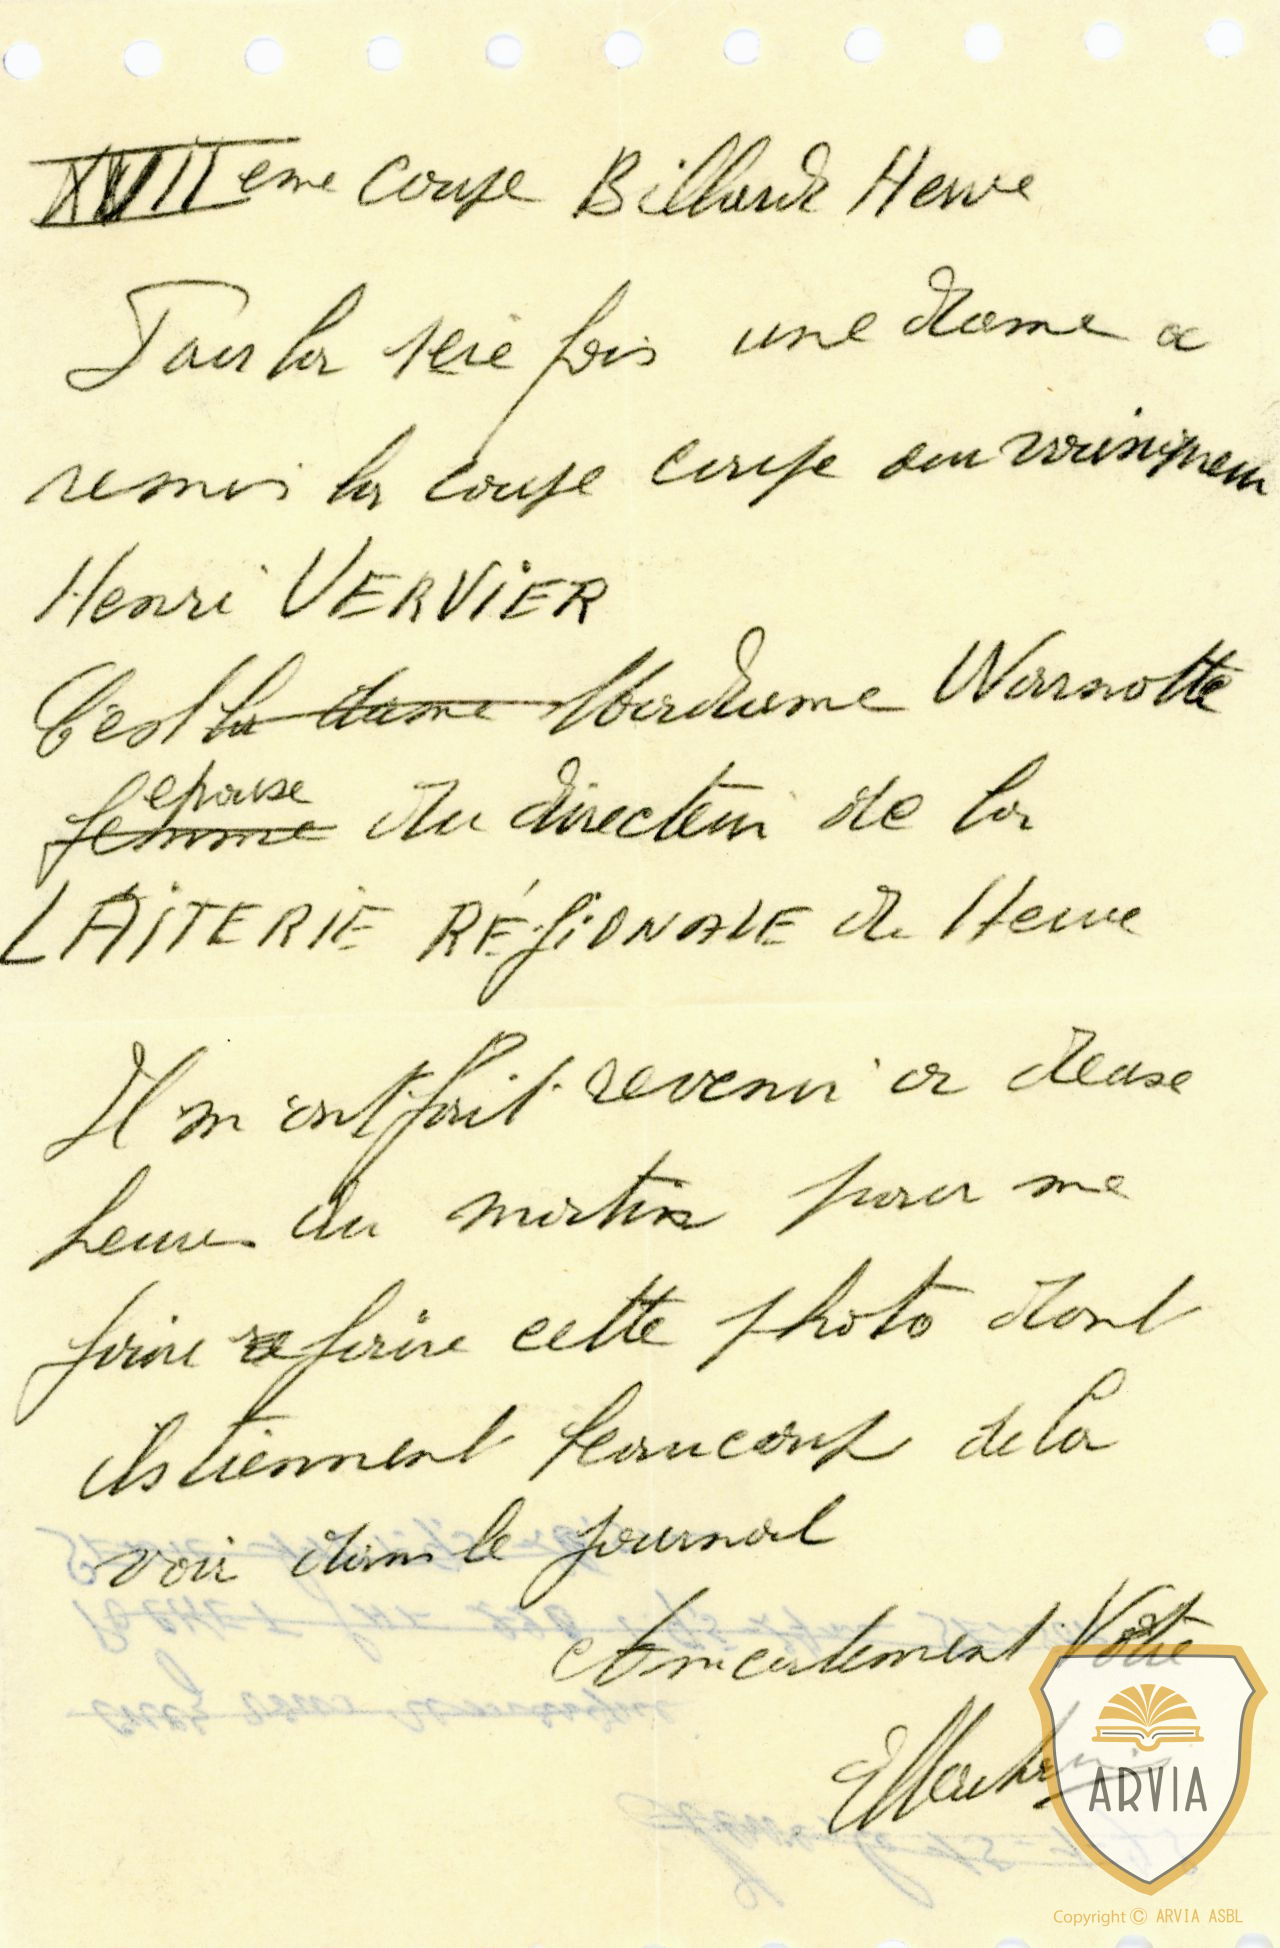 XVIIIeme Coupe Billard Herve
Pour la 1ere fois une dame a
remis la coupe coupe au vainqueur
Henri VERVIER
C'est la dame Madame Warnotte
epouse
femme du directeur de la
LAITERIE RÉGIONALE de Herve
Il m'ont fait revenir a deuse
heures du matin pour me
faire re faire cette photo dont
ils tiennent beaucoup de la
voir dans le journal
Amicalement Votre
ARVIA
Copyright © ARVIA ASBL